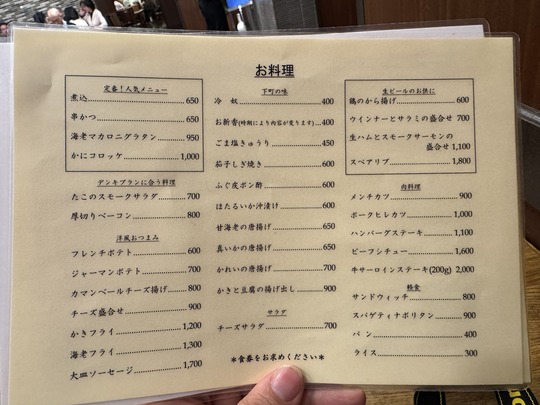 お料理
定番！人気メニュー
煮込 650
串かつ 650
海老マカロニグラタン 950
かにコロッケ 1,000
デンキブランに合う料理
たこのスモークサラダ 700
厚切りベーコン 800
洋風おつまみ
フレンチポテト 600
ジャーマンポテト 700
カマンベールチーズ揚げ 800
チーズ盛合せ 900
かきフライ 1,200
海老フライ 1,300
大皿ソーセージ 1,700
下町の味
冷奴 400
お新香(時期により内容が変ります) 400
ごま塩きゅうり 450
茄子しぎ焼き 600
ふぐ皮ポン酢 600
ほたるいか沖漬け 600
甘海老の唐揚げ 650
真いかの唐揚げ 650
かれいの唐揚げ 700
かきと豆腐の揚げ出し 900
サラダ
チーズサラダ 700
＊食券をお求めください＊
生ビールのお供に
鶏のから揚げ 600
ウインナーとサラミの盛合せ 700
生ハムとスモークサーモンの
盛合せ 1,100
スペアリブ 1,800
肉料理
メンチカツ 900
ポークヒレカツ 1,000
ハンバーグステーキ 1,100
ビーフシチュー 1,600
牛サーロインステーキ(200g) 2,000
軽食
サンドウィッチ 800
スパゲティナポリタン 900
パン 400
ライス 300